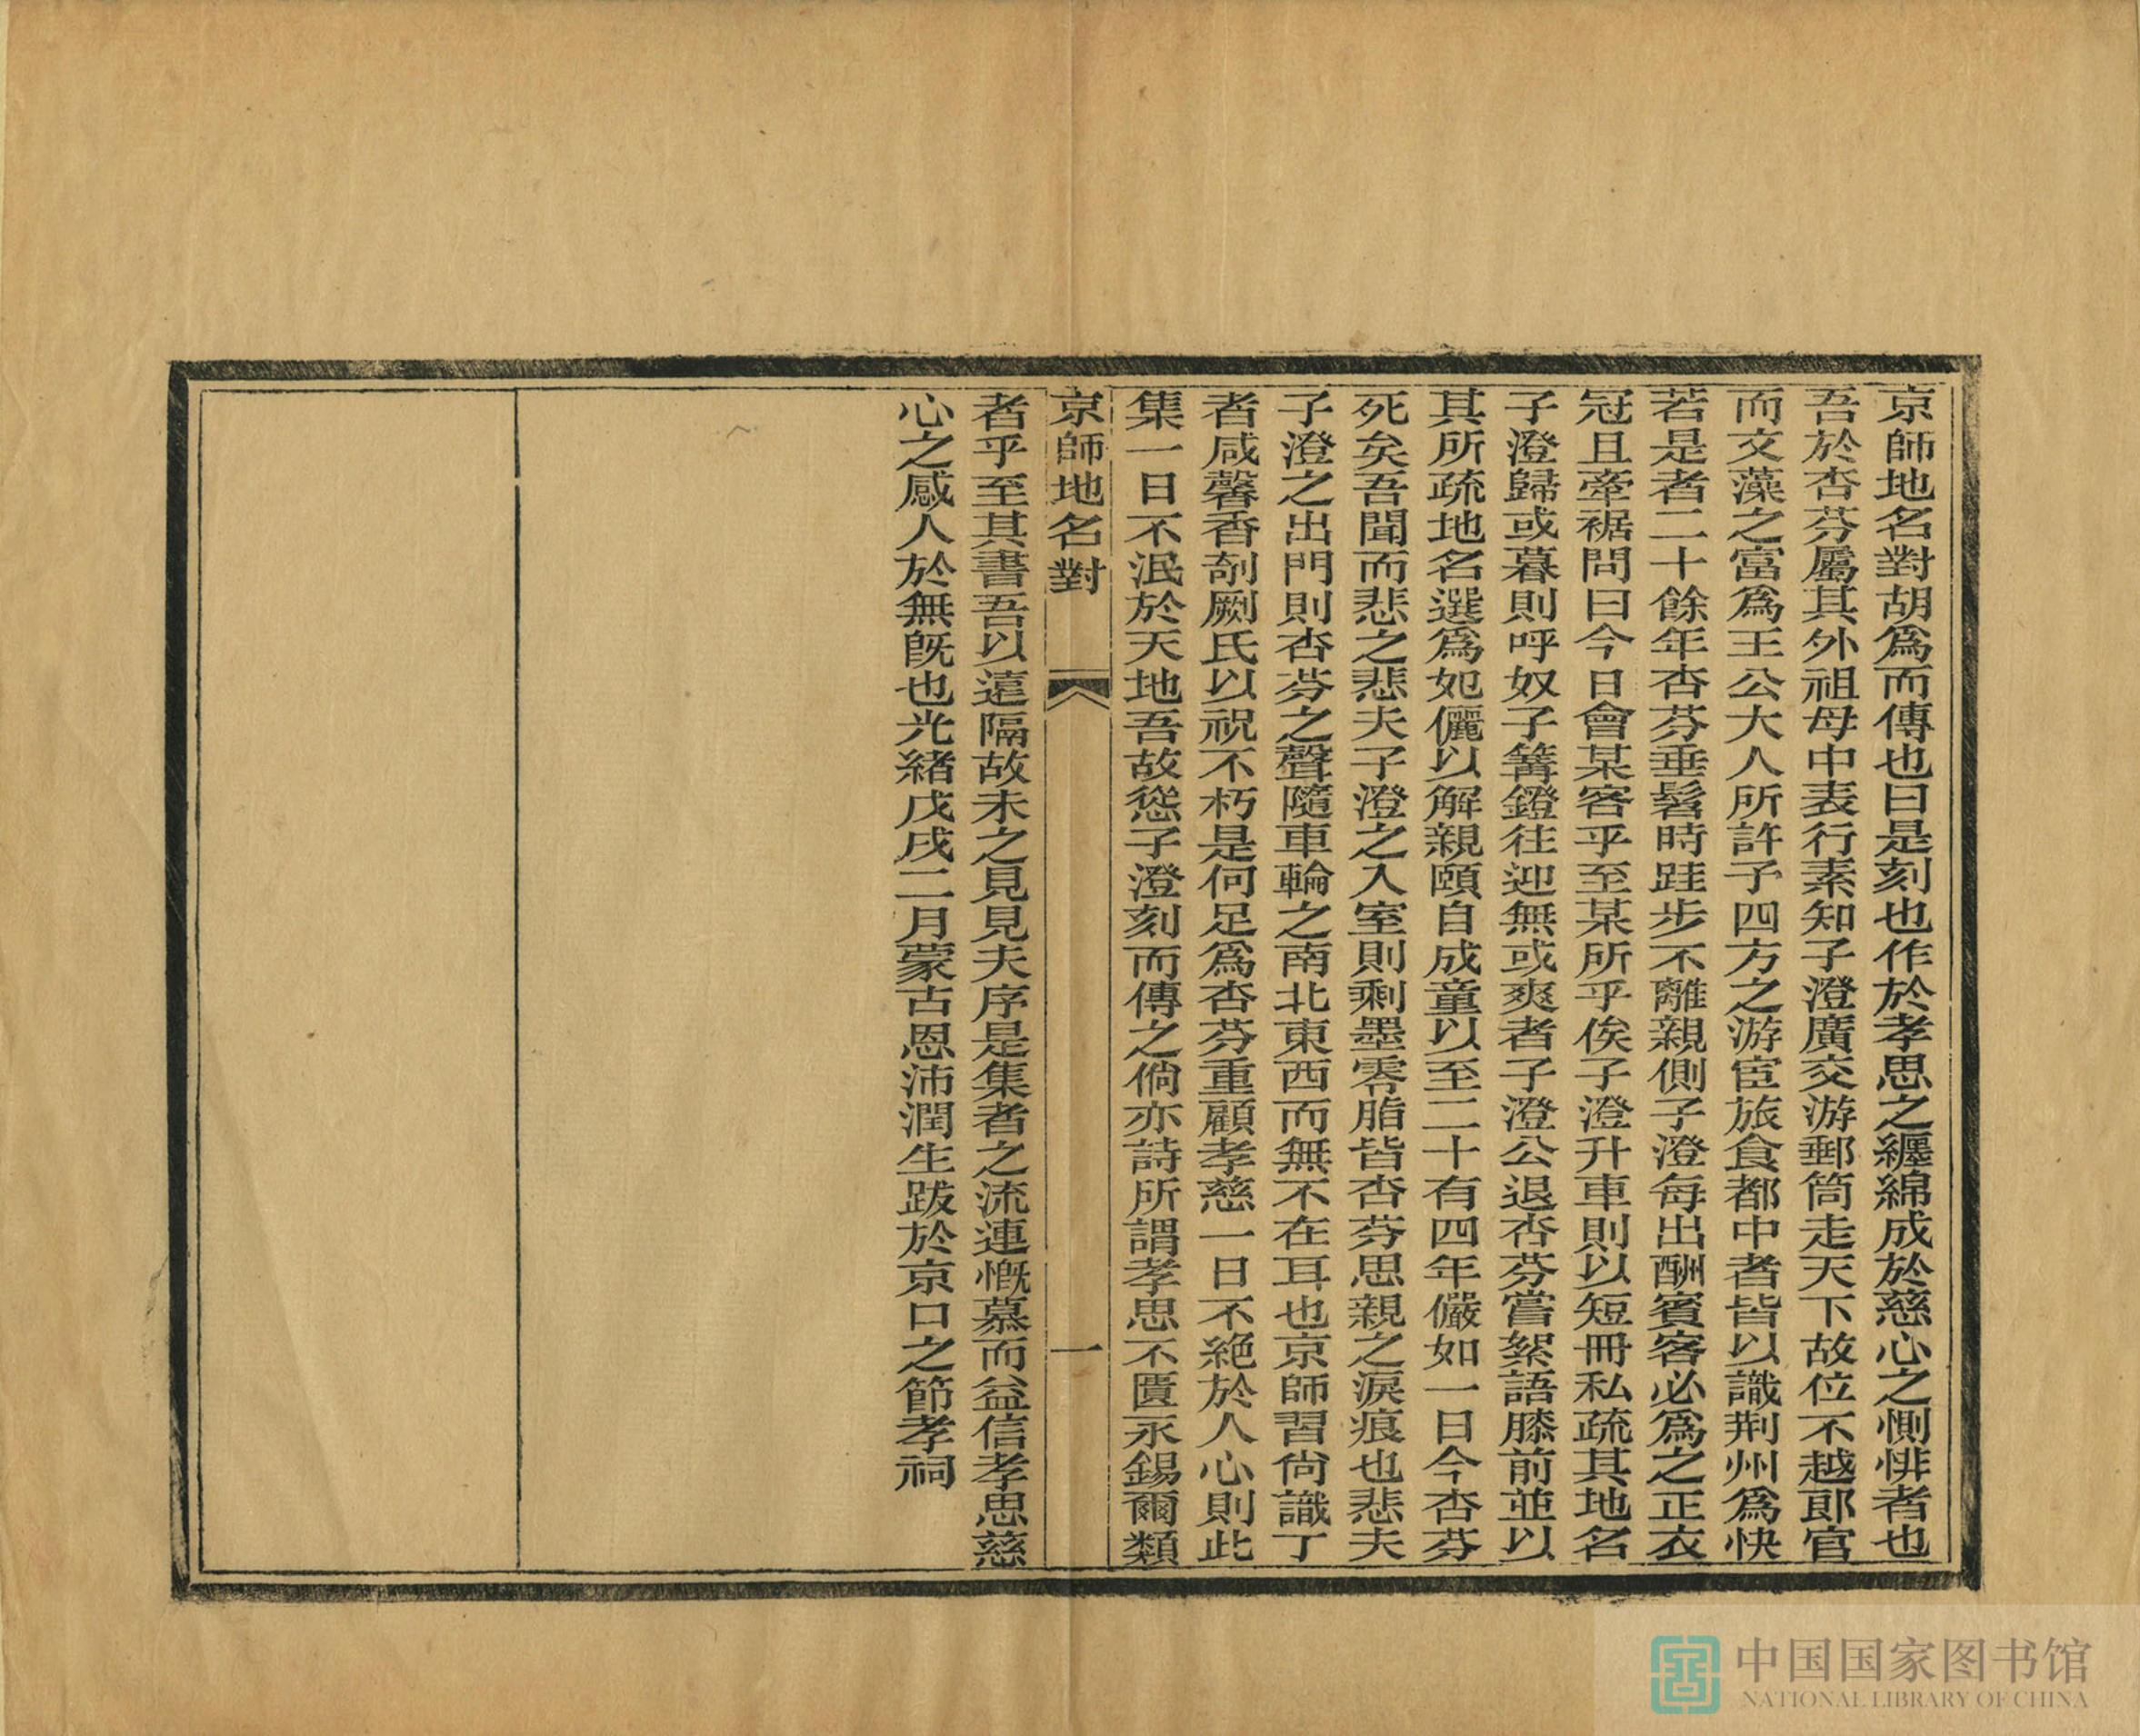 京師地名對胡爲而傳也曰是刻也作於孝思之纏綿成於慈心之惻悱者也
吾於杏芬屬其外祖母中表行素知子澄廣交游郵筒走天下故位不越郎官
而文藻之富爲王公大人所許子四方之游宦旅食都中者皆以識荆州爲快
若是者二十餘年杏芬垂髫時跬步不離親側子澄每出酬賓客必爲之正衣
冠且牽裾問曰今日會某客乎至某所乎俟子澄升車則以短冊私疏其地名
子澄歸或暮則呼奴子篝鐙往迎無或爽者子澄公退杏芬嘗絮語膝前並以
其所疏地名選爲妃儷以解親頤自成童以至二十有四年儼如一日今杏芬
死矣吾聞而悲之悲夫子澄之入室則剩墨零脂皆杏芬思親之淚痕也悲夫
子澄之出門則杏芬之聲隨車輪之南北東西而無不在耳也京師習尙識丁
者咸馨香剞劂氏以祝不朽是何足爲杏芬重顧孝慈一日不絶於人心則此
集一日不泯於天地吾故慫子澄刻而傳之倘亦詩所謂孝思不匱永錫爾類
京師地名對 一
者乎至其書吾以遠隔故未之見見夫序是集者之流連慨慕而益信孝思慈
心之感人於無旣也光緒戊戌二月蒙古恩沛潤生跋於京口之節孝祠
中国国家图书馆
NATIONAL LIBRARY OF CHINA